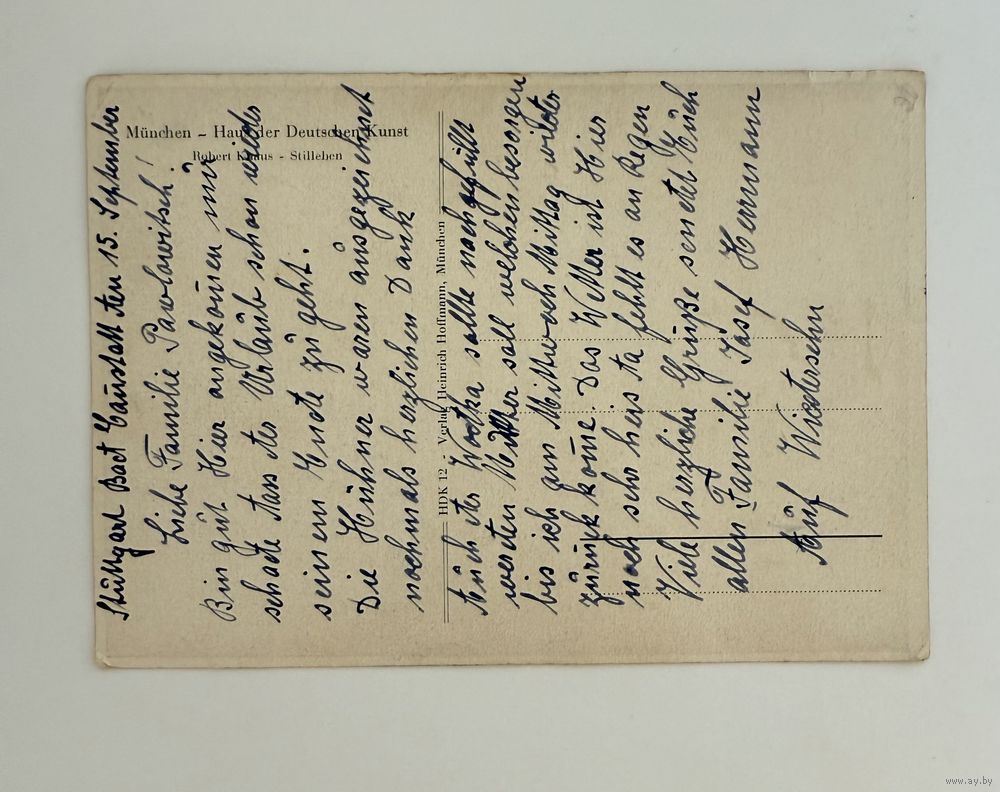 München – Haus der Deutschen Kunst
Robert Knaus - Stilleben
HDK 12 – Verlag Heinrich Hoffmann, München
Stuttgart Bad Canstatt den 15. September
Liebe Familie Pawlowitsch!
Bin gut Hier angekomen nur
schade dass der Urlaub schon wieder
seinem Ende zu geht.
Die Hühner waren ausgezeichnet
nochmals herzlichen Dank
Auch der Wodka sollte nachgefüllt
werden Mutter soll welchen besorgen
bis ich am Mittwoch Mittag wieder
zurück kome. Das Wetter ist Hier
noch sehr heis da fehlt es an Regen
Viele herzliche Grüße sendet Euch
allen Familie Josef Herrmann
Auf Wiedersehn
www.ay.by